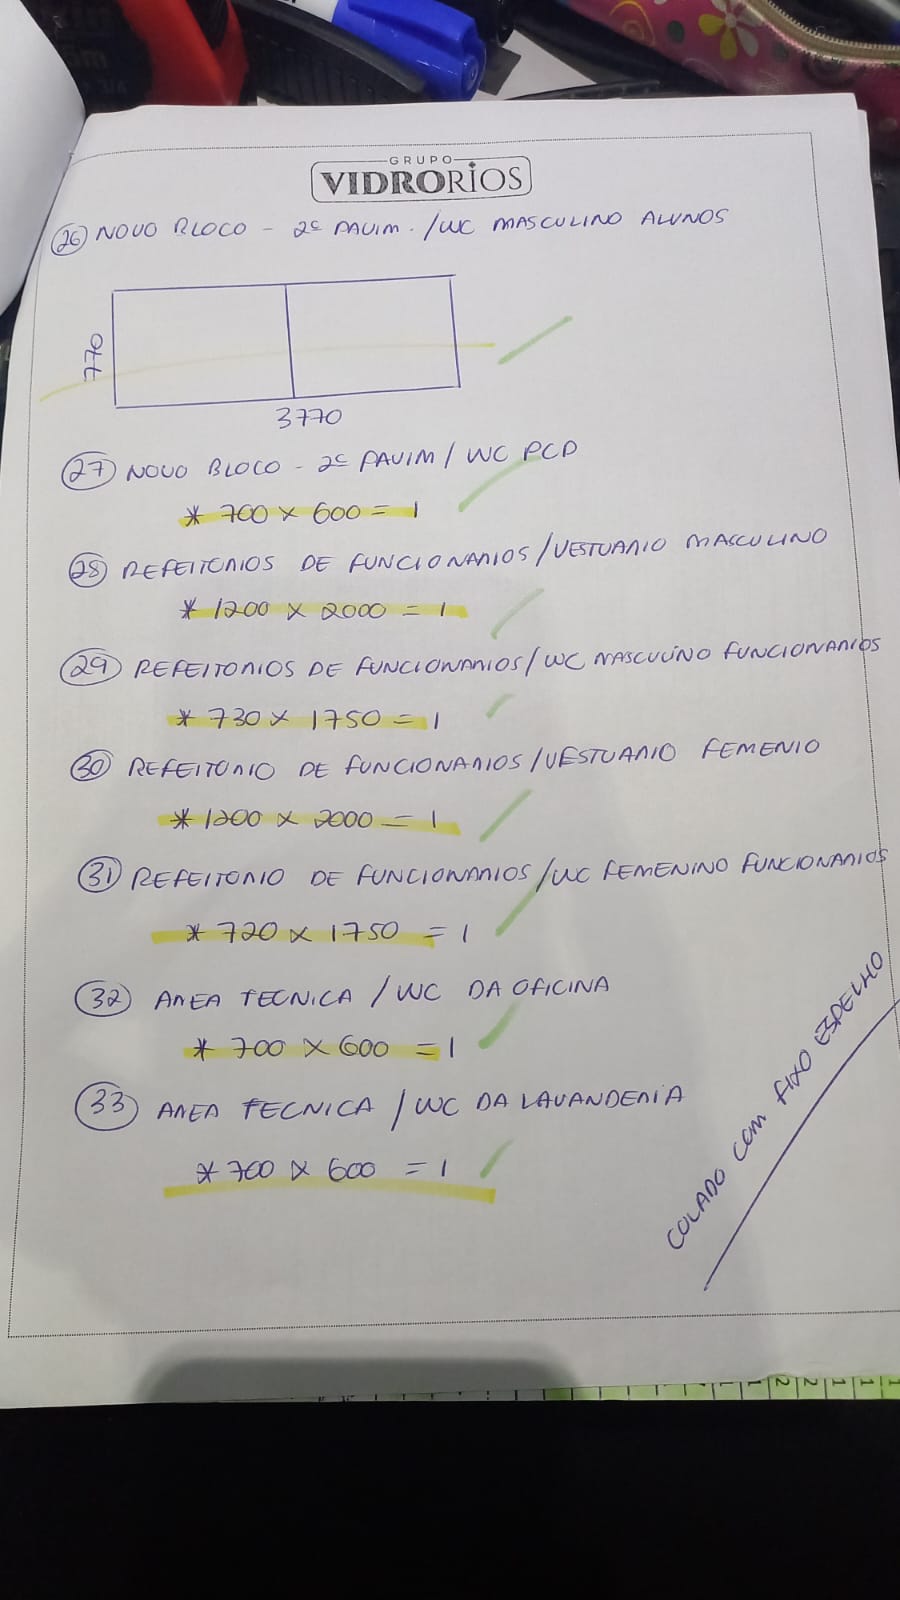 GRUPO
VIDRORIOS
26 NOVO BLOCO - 2º PAVIM. / WC MASCULINO ALUNOS
770
3770
27 NOVO BLOCO - 2º PAVIM / WC PCD
* 700 x 600 = 1
28 REFEITORIOS DE FUNCIONARIOS / VESTUARIO MASCULINO
* 1200 x 2000 = 1
29 REFEITORIOS DE FUNCIONARIOS / WC MASCULINO FUNCIONARIOS
* 730 x 1750 = 1
30 REFEITORIO DE FUNCIONARIOS / VESTUARIO FEMENIO
* 1200 x 2000 = 1
31 REFEITORIO DE FUNCIONARIOS / WC FEMENINO FUNCIONARIOS
* 720 x 1750 = 1
32 AREA TECNICA / WC DA OFICINA
* 700 x 600 = 1
33 AREA TECNICA / WC DA LAVANDERIA
* 700 x 600 = 1
COLADO COM FIXO ESPELHO